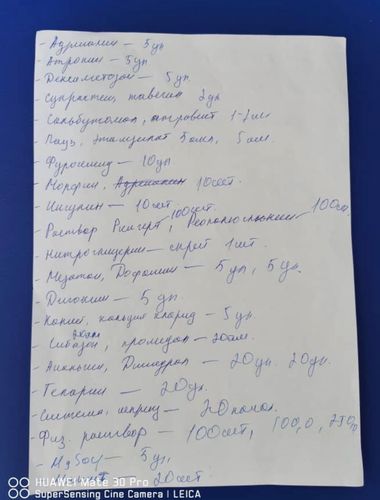 - Адреналин - 5 уп
- Атропин - 5 уп
- Дексаметозон - 5 уп.
- Супрастин, тавегил 2 уп
- Сальбутомол, атровент 1-2 шт
- этамзилат 5 амп, 5 ам.
- Фуросемид - 10 уп
- Морфин, 10 шт.
- Инсулин - 10 шт.
- Раствор Рингера 100 шт, Реополюглюкин 100 шт.
- Нитроглицерин - спрей 1 шт.
- Мезатон, Дофамин - 5 уп, 5 уп.
- Дигоксин - 5 уп
- Калий, кальция хлорид - 5 уп.
- Сибазон, 20 амп промидол - 20 амп.
- Анальгин, Димедрол - 20 уп. 20 уп.
- Гепарин - 20 уп.
- Система, шприц - 20
- Физ. раствор - 100 шт, 100,0, 250,0
- MgSO4 - 5 уп,
20 шт
HUAWEI Mate 30 Pro
SuperSensing Cine Camera | LEICA